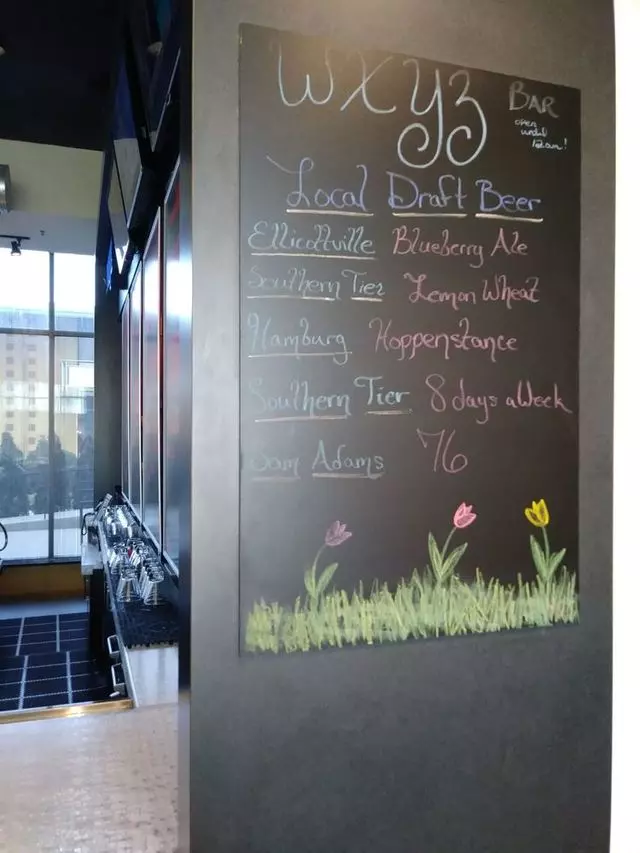 WXYZ BAR
open
until
12am!
Local Draft Beer
Ellicottville Blueberry Ale
Southern Tier Lemon Wheat
Hamburg Hoppenstance
Southern Tier 8 days a Week
Sam Adams '76